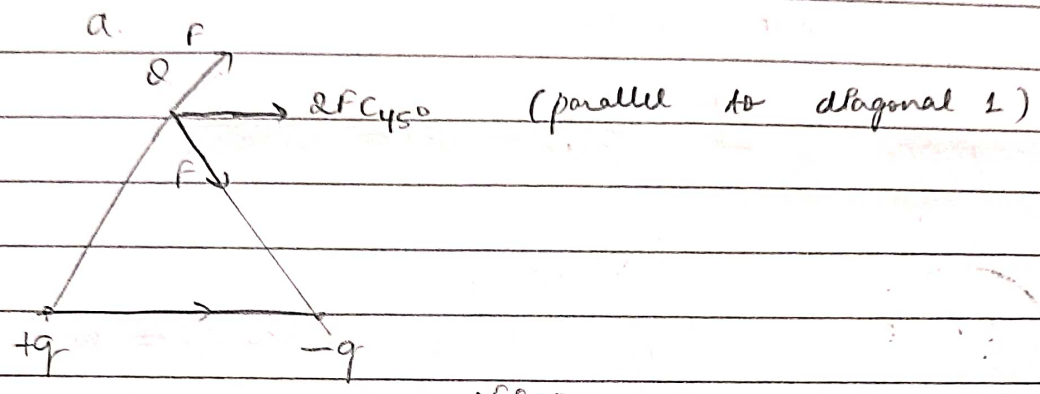 a. F
Q
2FC45° (parallel to diagonal 1)
F
+q -q